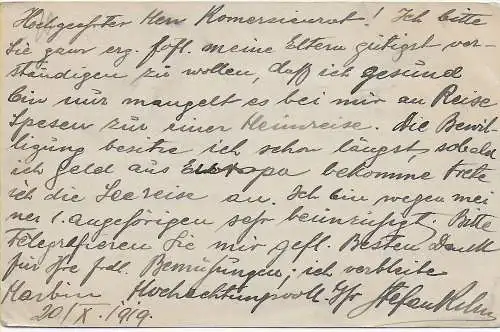 Hochgeehrter Herr Komersienrat! Ich bitte
Sie ganz erg. gefl. meine Eltern gütigst ver-
ständigen zu wollen, daß ich gesund
bin nur mangelt es bei mir an Reise
Spesen zur einer Heimreise. Die Bewil-
ligung besitze ich schon längst, sobald
ich Geld aus Europa bekomme trete
ich die Seereise an. Ich bin wegen mei
ner l. angehörigen sehr beunruhigt. Bitte
Telegrafieren Sie mir gefl. Besten Dank
für Ihre frdl. Bemühungen; ich verbleibe
Harbin Hochachtungsvoll Ihr Stefan
20/X. 1919.